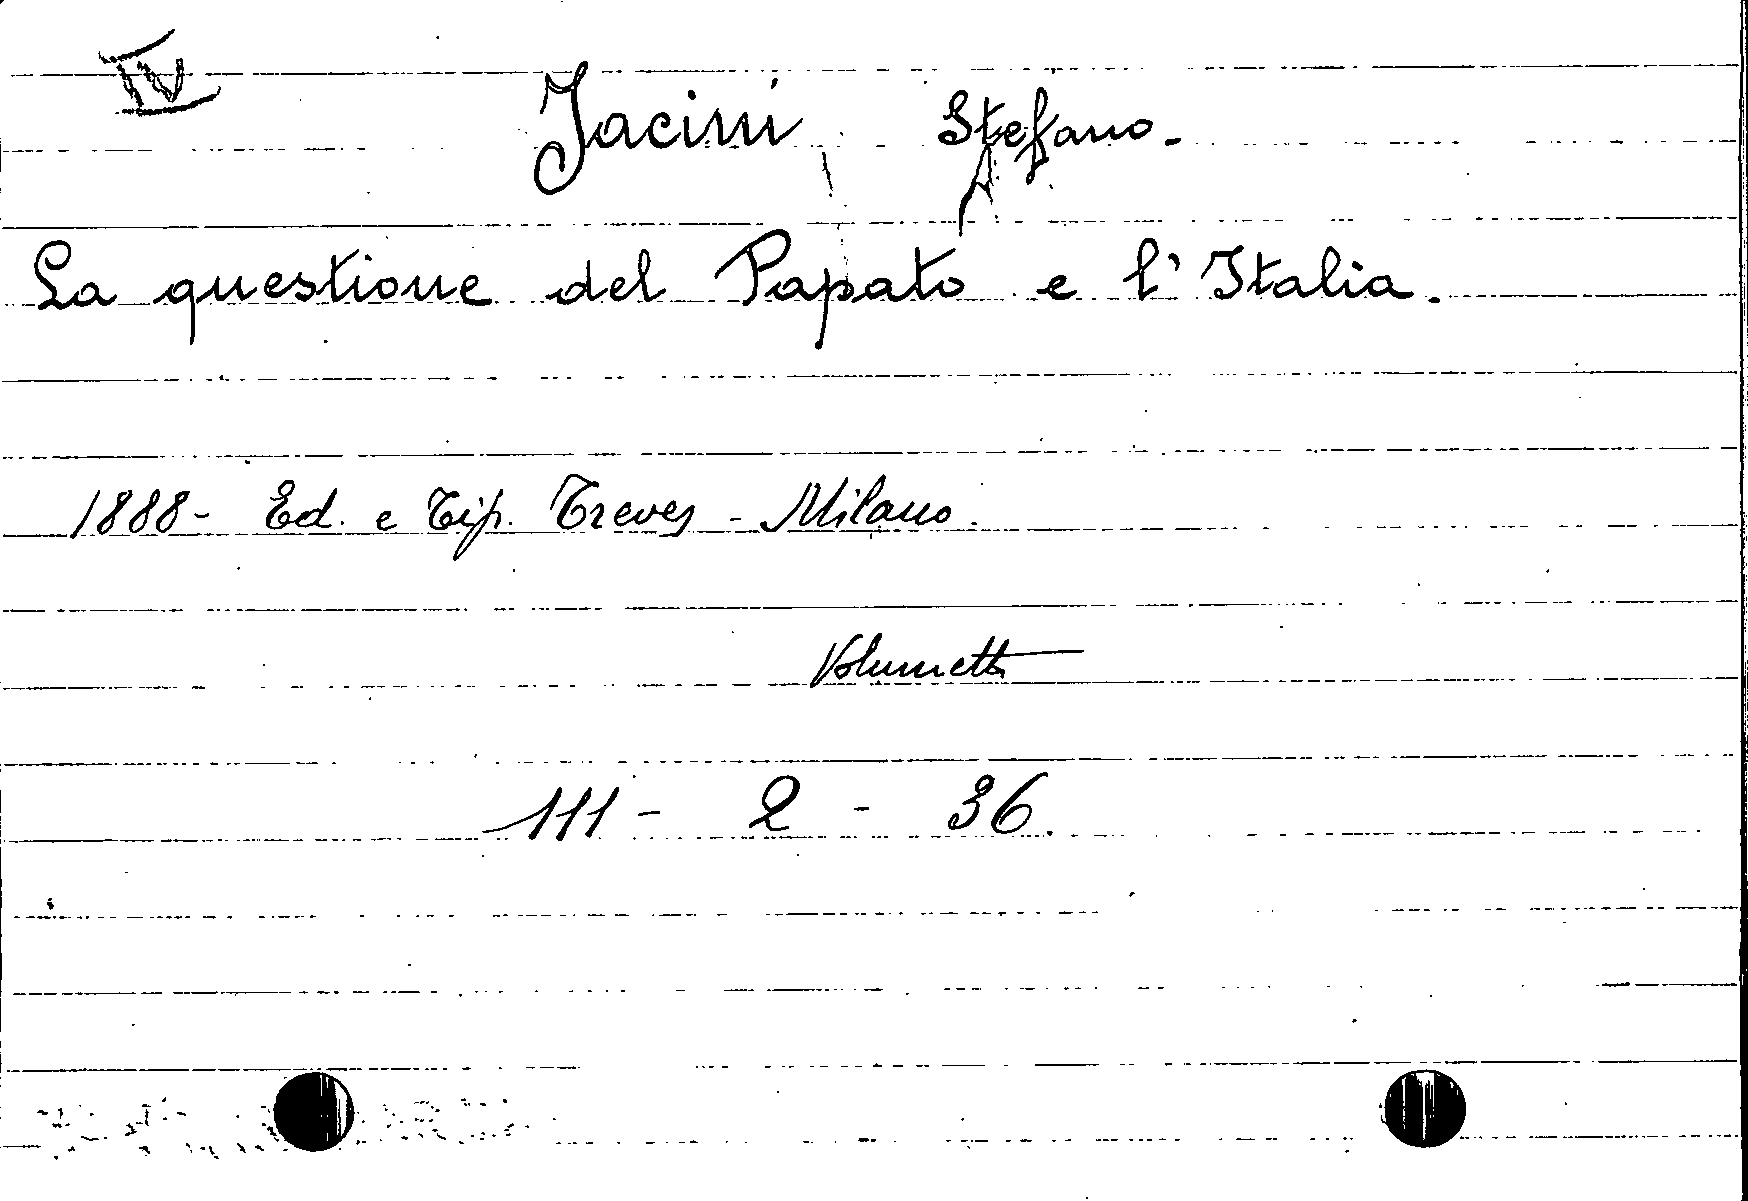 IV
Jacini Stefano.
La questione del Papato e l'Italia.
1888 - Ed. e Tip. Treves - Milano.
Volumetto
111 - 2 - 36.